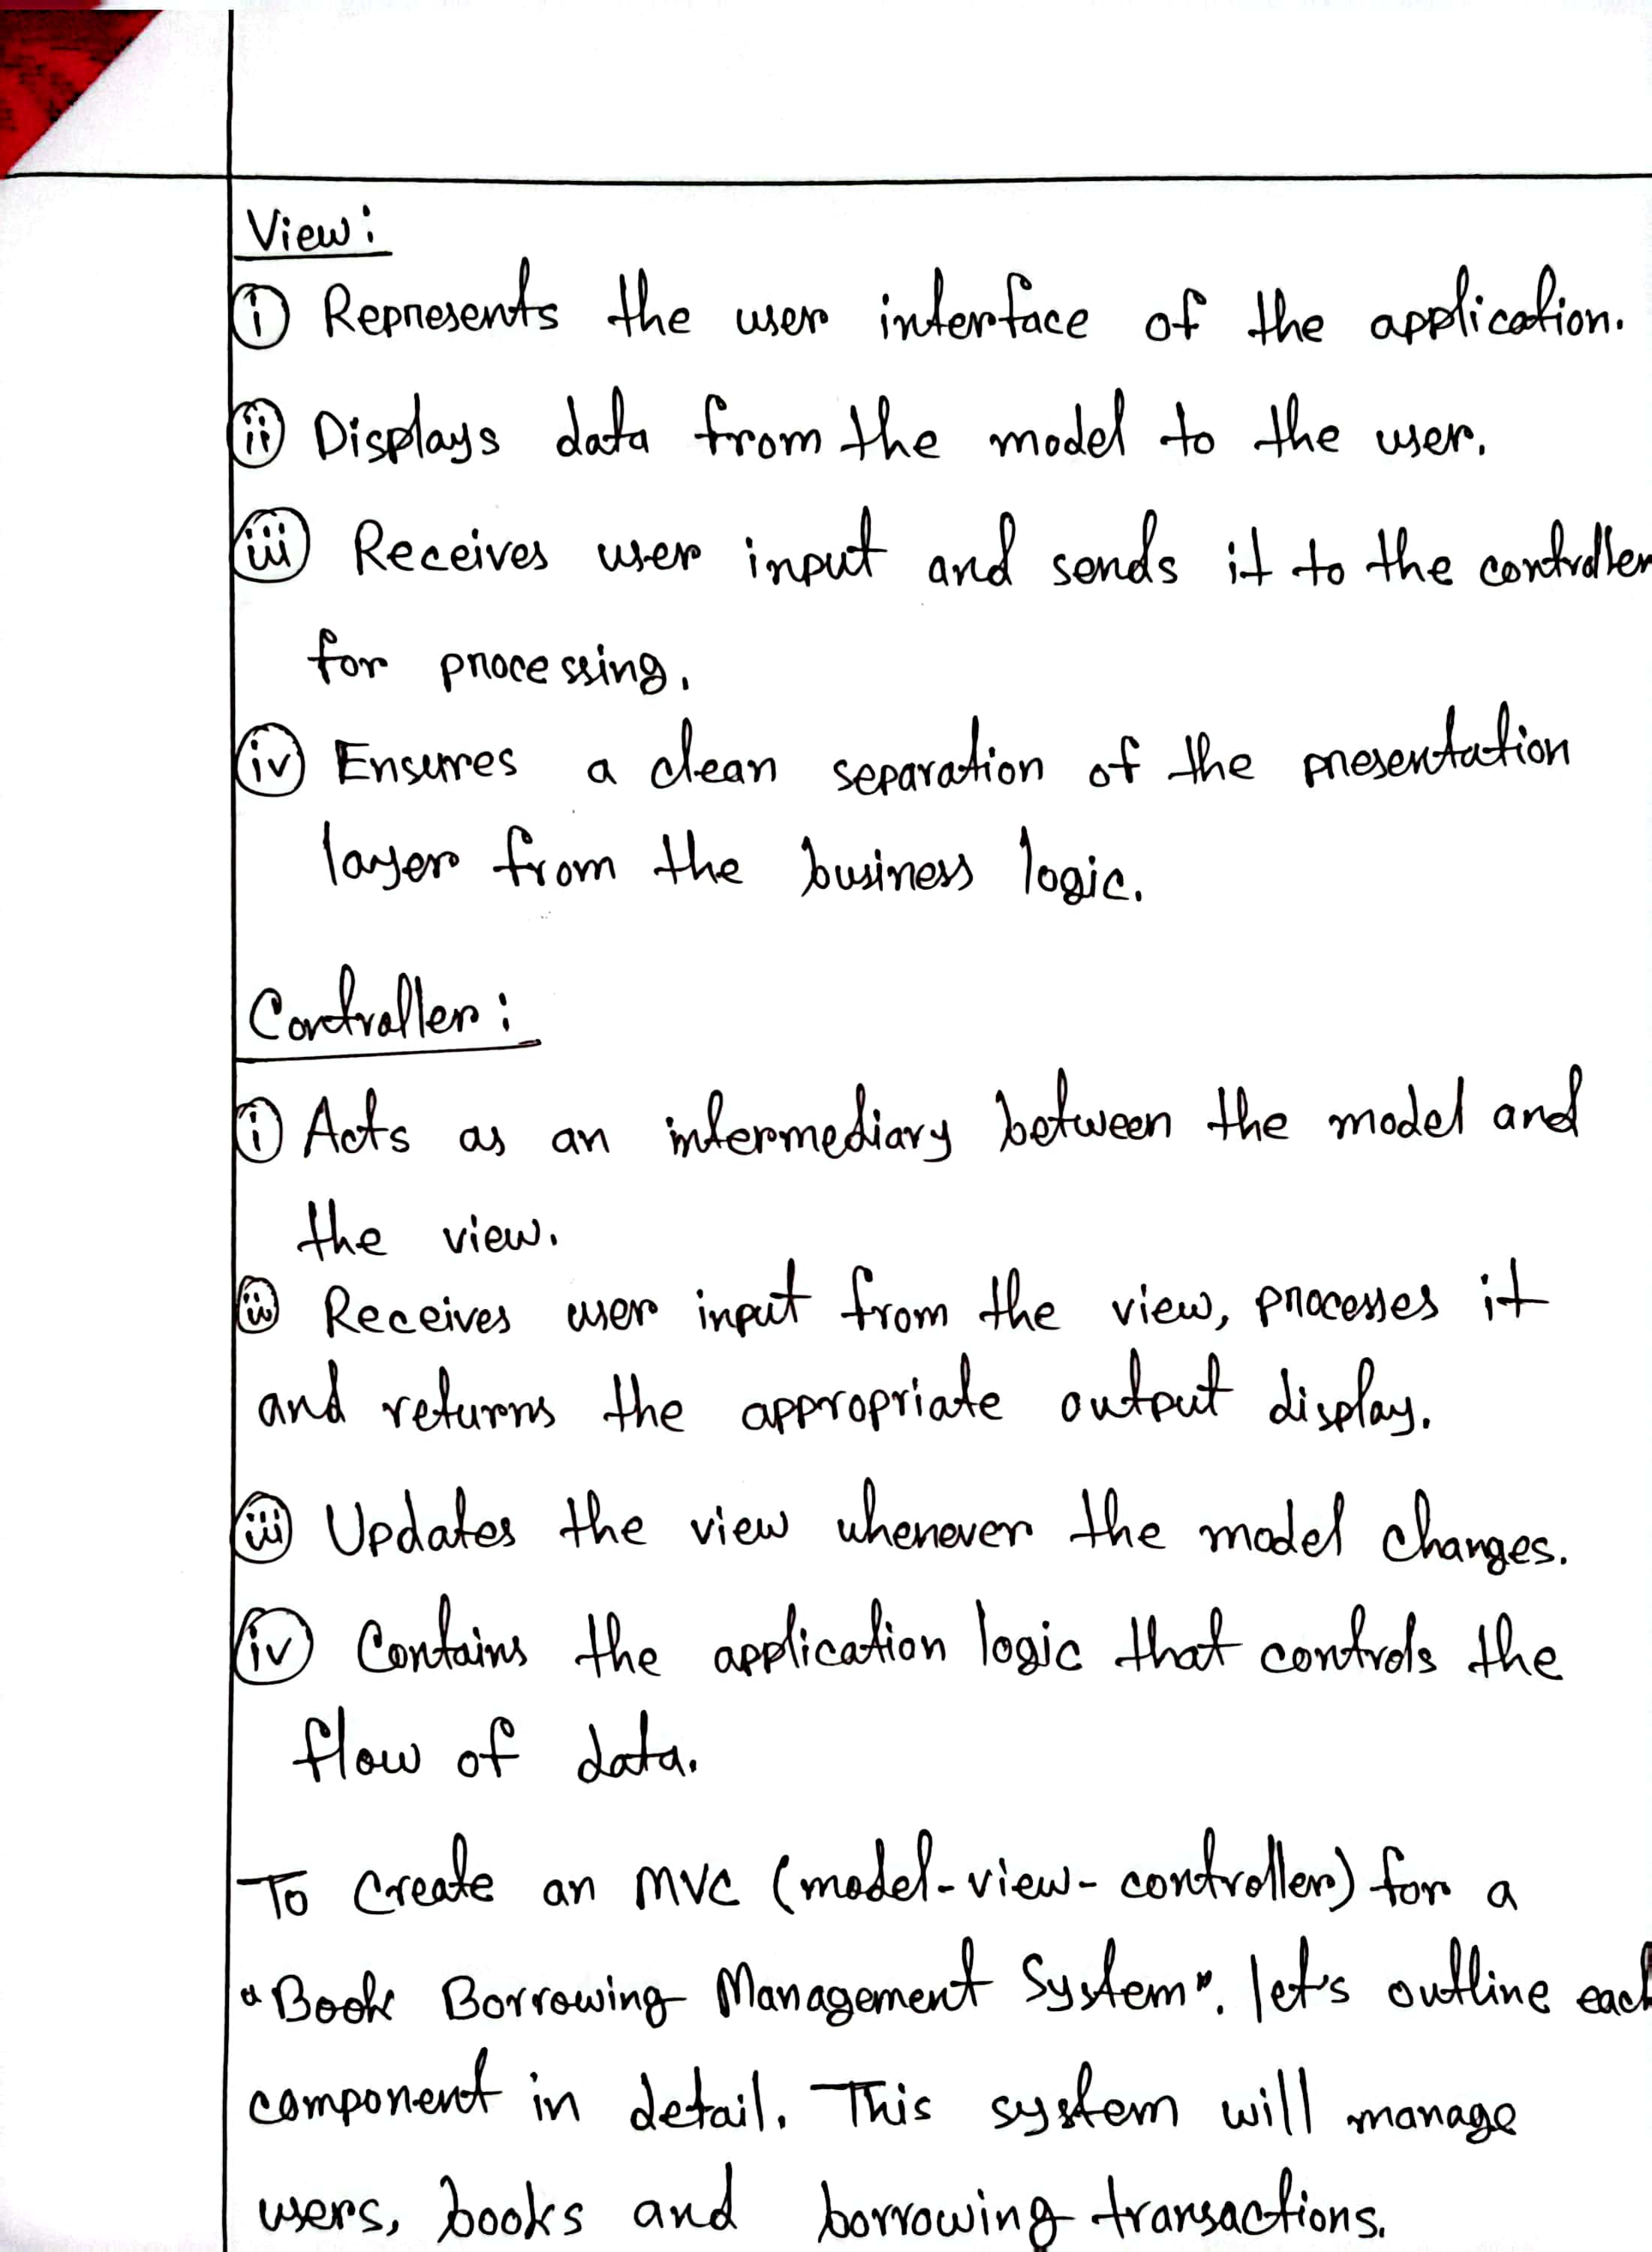 View:
(i) Represents the user interface of the application.
(ii) Displays data from the model to the user.
(iii) Receives user input and sends it to the controller
for processing.
(iv) Ensures a clean separation of the presentation
layer from the business logic.
Controller:
(i) Acts as an intermediary between the model and
the view.
(ii) Receives user input from the view, processes it
and returns the appropriate output display.
(iii) Updates the view whenever the model changes.
(iv) Contains the application logic that controls the
flow of data.
To create an MVC (model-view-controller) for a
"Book Borrowing Management System". let's outline each
component in detail. This system will manage
users, books and borrowing transactions.